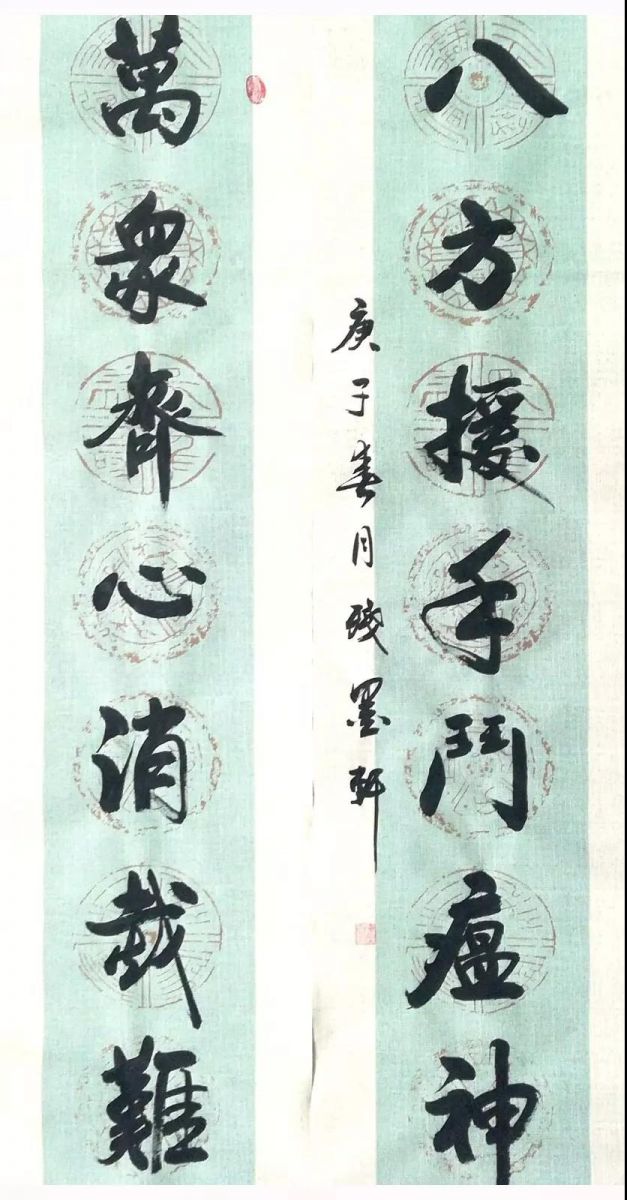 八方援手鬥瘟神
庚子春月残墨軒
萬衆齊心消難